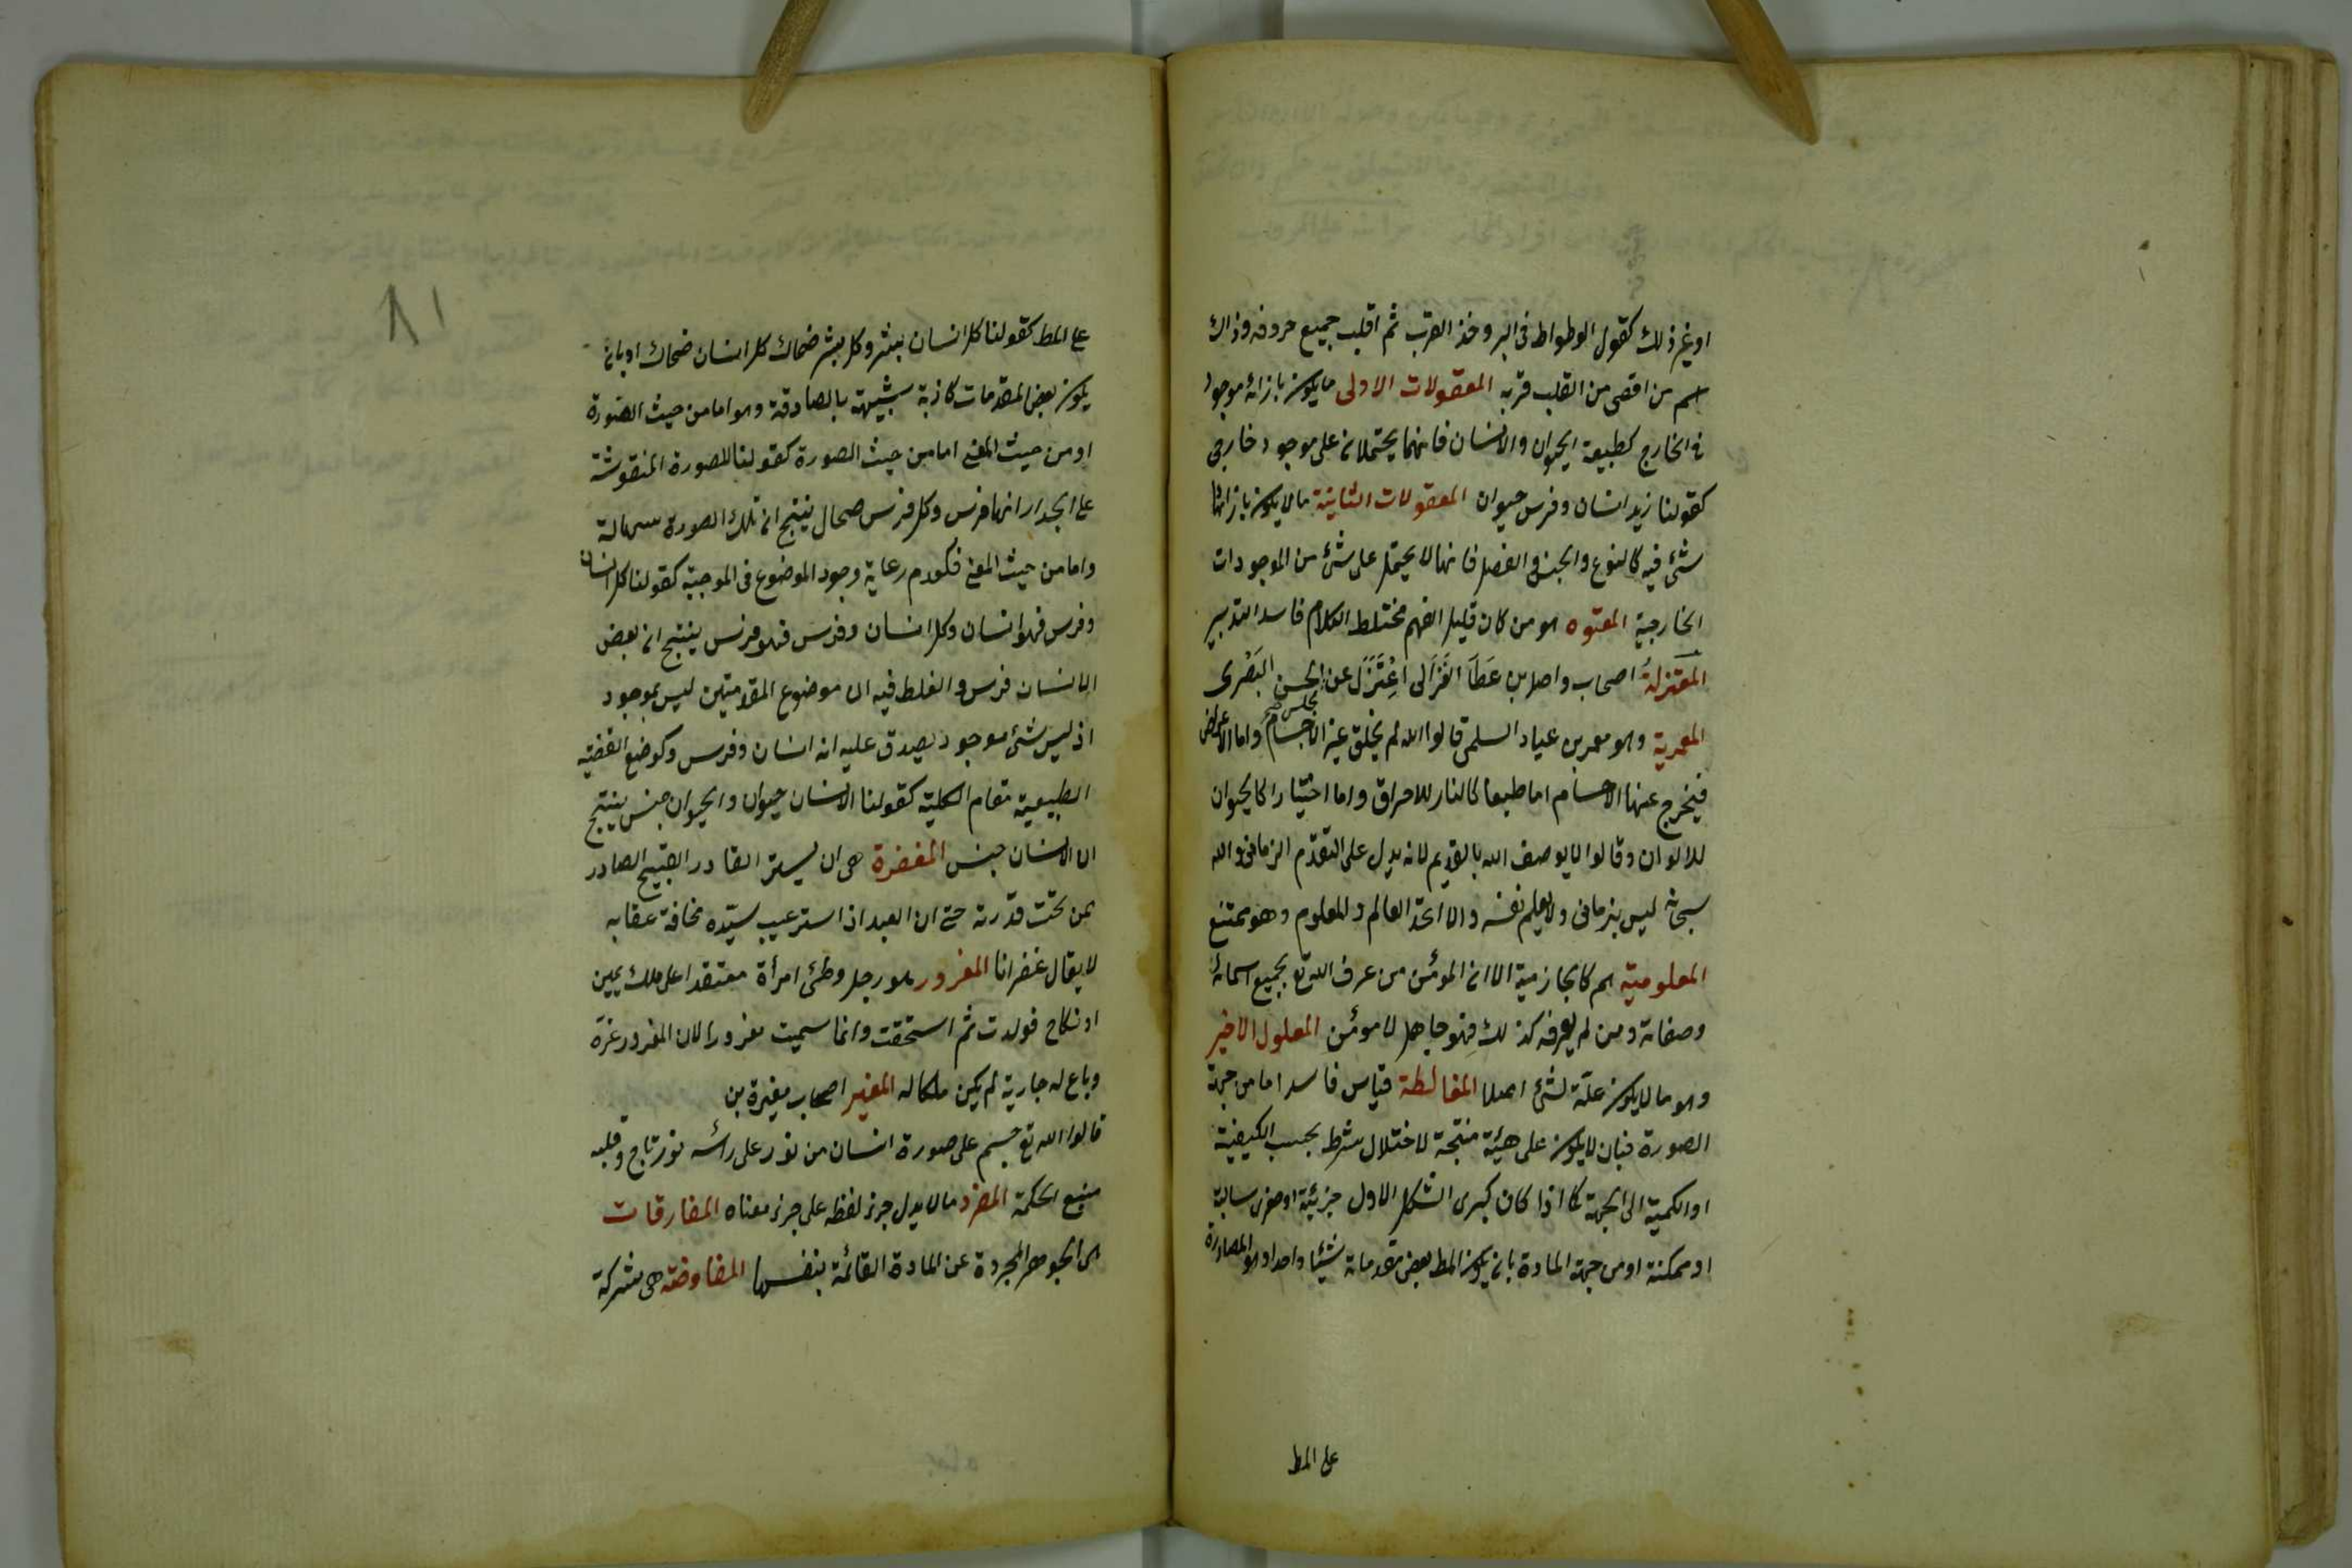 او غير ذلك كقول الوطواط فى البر وخذ القرب ثم اقلب جميع حروفه وذاك
اسم من اقصى من القلب قربه المعقولات الاولى ما يكون بازائه موجود
فى الخارج كطبيعة الحيوان والانسان فانهما يحتملان على موجود خارجى
كقولنا زيد انسان وفرس حيوان المعقولات الثانية ما لا يكون بازائها
شئ فيه كالنوع والجنس والفصل فانها لا يحتمل على شئ من الموجودات
الخارجية المعتوه هو من كان قليل الفهم مختلط الكلام فاسد التدبير
المعتزلة اصحاب واصل بن عَطَآ الغَزَّالى اعْتَزَل عن مجلس الحسن البَصْرى
المعمرية وهو معمر بن عباد السلمى قالوا الله لم يخلق غير الاجسام واما الاعراض
فيخرج عنها الاجسام اما طبعا كالنار للاحراق واما اختيارا كالحيوان
للالوان وقالوا لا يوصف الله بالقديم لانه يدل على التقدّم الزمانى والله
سبحانه ليس بزمانى ولا يعلم نفسه والا اتحد العالم والمعلوم وهو ممتنع
المعلومية هم كالجازمية الا ان المؤمن من عرف الله تع بجميع اسمائه
وصفاته ومن لم يعرفه كذلك فهو جاهل لا مؤمن المعلول الاخير
وهو ما لا يكون علّة لشئ اصلا المغالطة قياس فاسد اما من جهة
الصورة فبان لا يكون على هيئة منتجة لاختلال شرط بحسب الكيفية
او الكمية الى الجهة كما اذا كان كبرى الشكل الاول جزئية او صغرى سالبة
او ممكنة او من جهة المادة بان يكون المط بعض مقدماته شيئا واحدا وهو المصادرة
على المط
٨١
على المط كقولنا كل انسان بشر وكل بشر ضحاك كل انسان ضحاك او بان
يكون بعض المقدمات كاذبة شبيهة بالصادقة وهو اما من حيث الصورة
او من حيث المعنى اما من حيث الصورة كقولنا للصورة المنقوشة
على الجدار انها فرس وكل فرس صهال ينتج ان تلك الصورة سهالة
واما من حيث المعنى فكعدم رعاية وجود الموضوع فى الموجبة كقولنا كل انسان
وفرس فهو انسان وكل انسان وفرس فهو فرس ينتج ان بعض
الانسان فرس والغلط فيه ان موضوع المقدمتين ليس بموجود
اذ ليس شئ موجود يصدق عليه انه انسان وفرس وكوضع القضية
الطبيعية مقام الكلية كقولنا الانسان حيوان والحيوان جنس ينتج
ان الانسان جنس المغفرة هى ان يستر القادر القبيح الصادر
ممن تحت قدرته حتى ان العبد اذ استر عيب سيّده مخافة عقابه
لا يقال غفرانا المغرور هو رجل وطئ امرأة معتقدا على ملك يمين
او نكاح فولدت ثم استحقت وانما سميت مغرورا لان المغرور غرّه
وباع له جارية لم يكن ملكا له المغير اصحاب مغيرة بن
قالوا الله تع جسم على صورة انسان من نور على رأسه نور تاج وقلبه
منبع الحكمة المفرد ما لا يدل جزء لفظه على جزء معناه المفارقات
هى الجوهر المجردة عن المادة القائمة بنفسها المفاوضة هى شركة